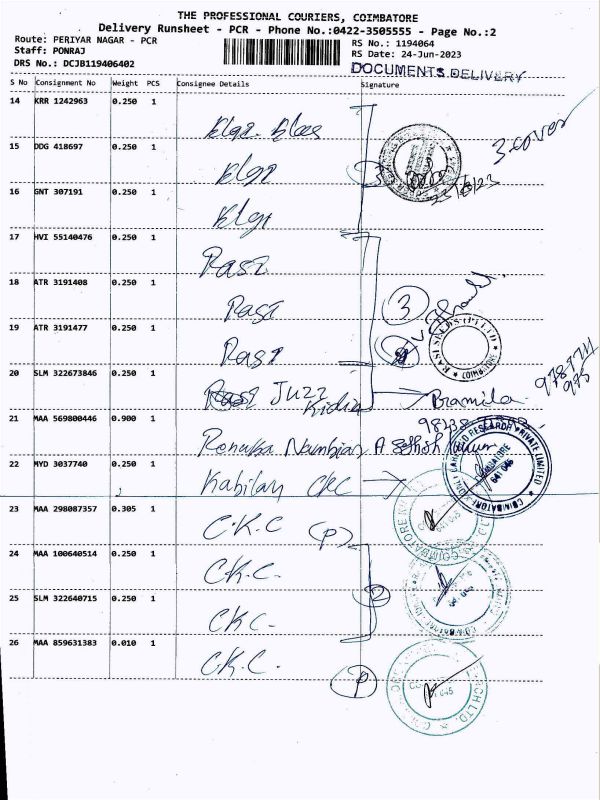 THE PROFESSIONAL COURIERS, COIMBATORE
Delivery Runsheet - PCR - Phone No.:0422-3505555 - Page No.:2
Route: PERIYAR NAGAR - PCR
RS No.: 1194064
Staff: PONRAJ
RS Date: 24-Jun-2023
DRS No.: DCJB119406402
DOCUMENTS DELIVERY
S No Consignment No Weight PCS Consignee Details Signature
14 KRR 1242963 0.250 1
3 cover
15 DDG 418697 0.250 1 Elgi
3
16 GNT 307191 0.250 1 Elgi
17 HVI 55140476 0.250 1 Rasi
18 ATR 3191408 0.250 1 Rasi
3
19 ATR 3191477 0.250 1 Rasi
RASI SEEDS (P) LTD
COIMBATORE
20 SLM 322673846 0.250 1 Juzz
Bramila
21 MAA 569800446 0.900 1 Renuka Nambiar A
22 MYD 3037740 0.250 1 Kabilan CKC
RESEARCH PRIVATE LIMITED
COIMBATORE
641 045
23 MAA 298087357 0.305 1 C.K.C (P)
24 MAA 100640514 0.250 1 C.K.C.
2
25 SLM 322640715 0.250 1 CKC.
26 MAA 859631383 0.010 1 C.K.C.
P